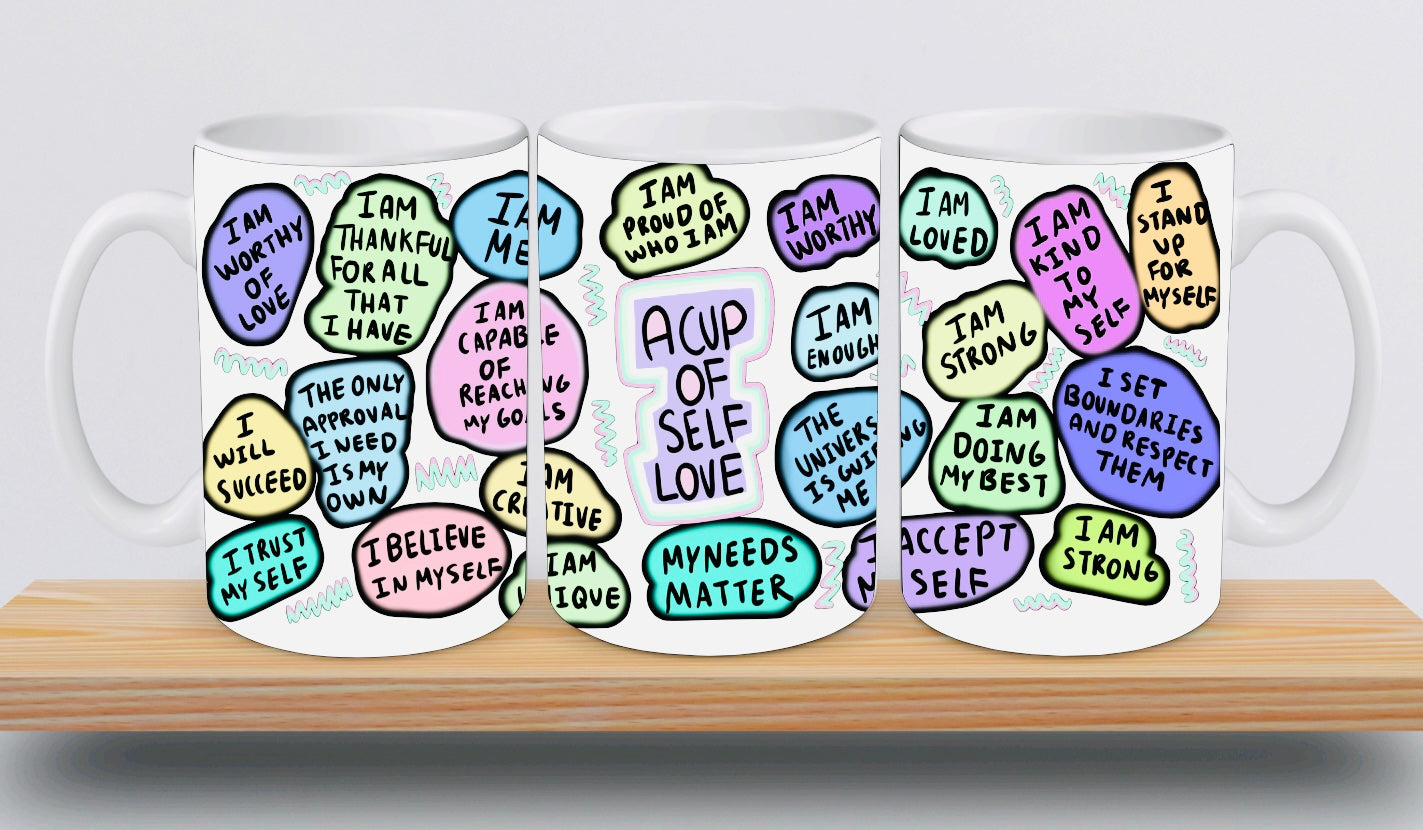 I AM
WORTHY
OF
LOVE
I AM
THANKFUL
FOR ALL
THAT
I HAVE
I AM
ME
I AM
CAPABLE
OF
REACHING
MY GOALS
THE ONLY
APPROVAL
I NEED
IS MY
OWN
I
WILL
SUCCEED
I TRUST
MY SELF
I BELIEVE
IN MYSELF
I AM
CREATIVE
I AM
UNIQUE
I AM
PROUD OF
WHO I AM
A CUP
OF
SELF
LOVE
MY NEEDS
MATTER
I AM
WORTHY
I AM
ENOUGH
THE
UNIVERS
IS GUIDING
ME
I AM
LOVED
I AM
STRONG
I AM
KIND
TO
MY
SELF
I
STAND
UP
FOR
MYSELF
I AM
DOING
MY BEST
I SET
BOUNDARIES
AND RESPECT
THEM
I ACCEPT
SELF
I AM
STRONG